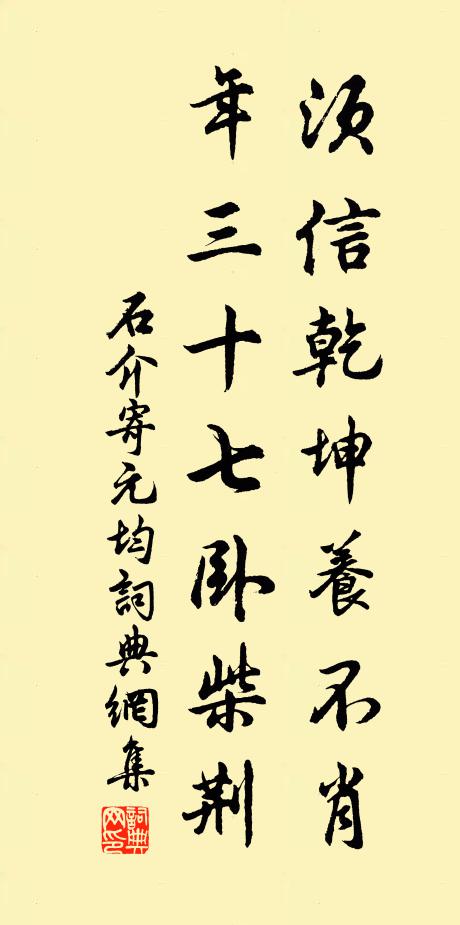 須信乾坤養不肖
年三十七卧柴荆
石介寄元均詞典網集
詞典網印